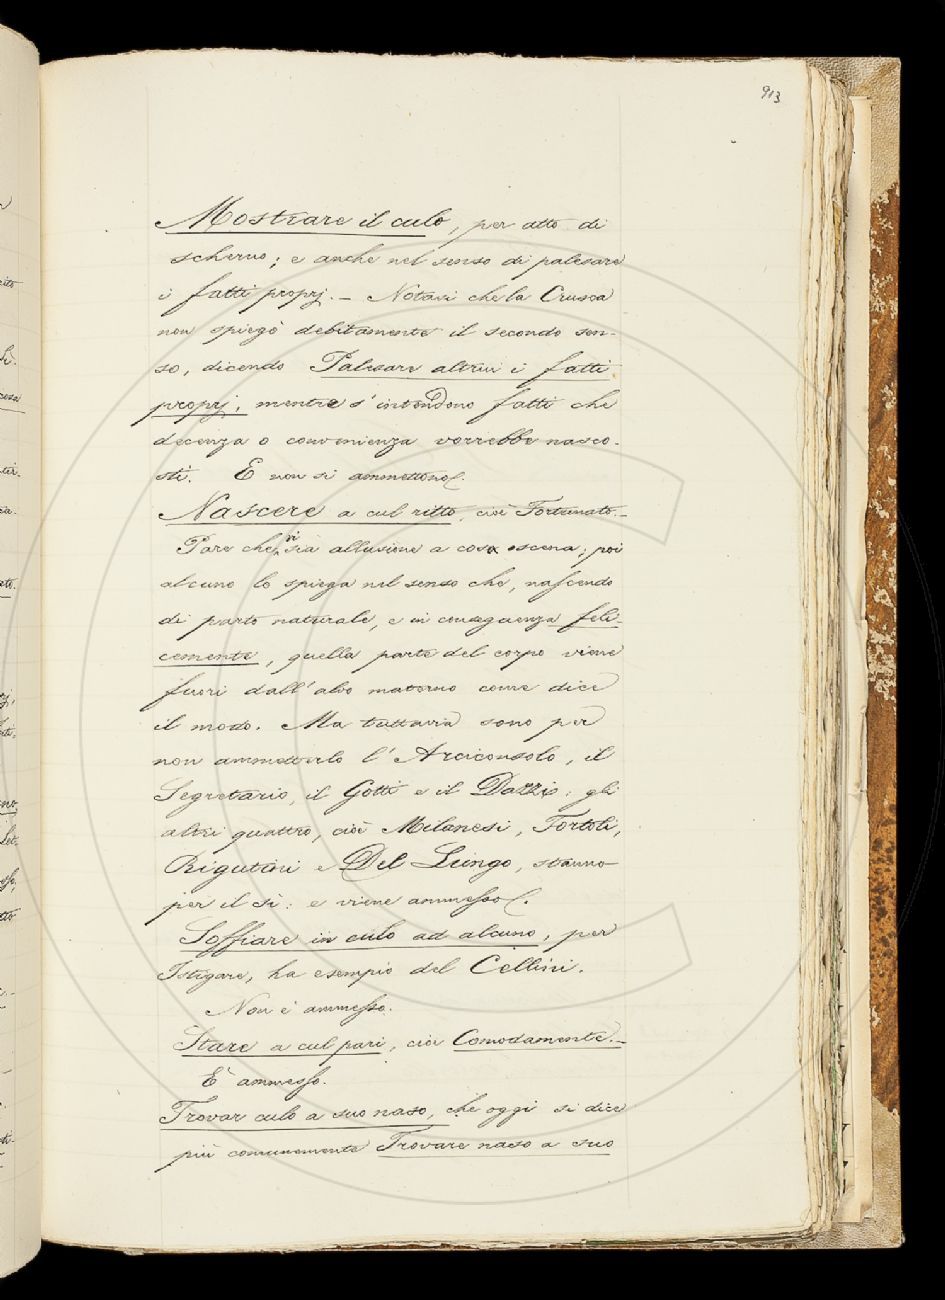 913
Mostrare il culo, per atto di
scherno; e anche nel senso di palesare
i fatti proprj. — Notasi che la Crusca
non spiegò debitamente il secondo sen-
so, dicendo Palesare altrui i fatti
proprj, mentre s'intendono fatti che
decenza o convenienza vorrebbe nasco-
sti. E non si ammettono.
Nascere a cul ritto, cioè Fortunato. —
Pare che vi sia allusione a cosa oscena; poi
alcuno lo spiega nel senso che, nascendo
di parto naturale, e in conseguenza feli-
cemente, quella parte del corpo viene
fuori dall'alvo materno come dice
il modo. Ma tuttavia sono per
non ammetterlo l'Arciconsolo, il
Segretario, il Gotti e il Dazzi; gli
altri quattro, cioè Milanesi, Tortoli,
Rigutini e Del Lungo, stanno
per il sì: e viene ammesso.
Soffiare in culo ad alcuno, per
Istigare, ha esempio del Cellini.
Non è ammesso.
Stare a cul pari, cioè Comodamente. —
È ammesso.
Trovar culo a suo naso, che oggi si dice
più comunemente Trovare naso a suo